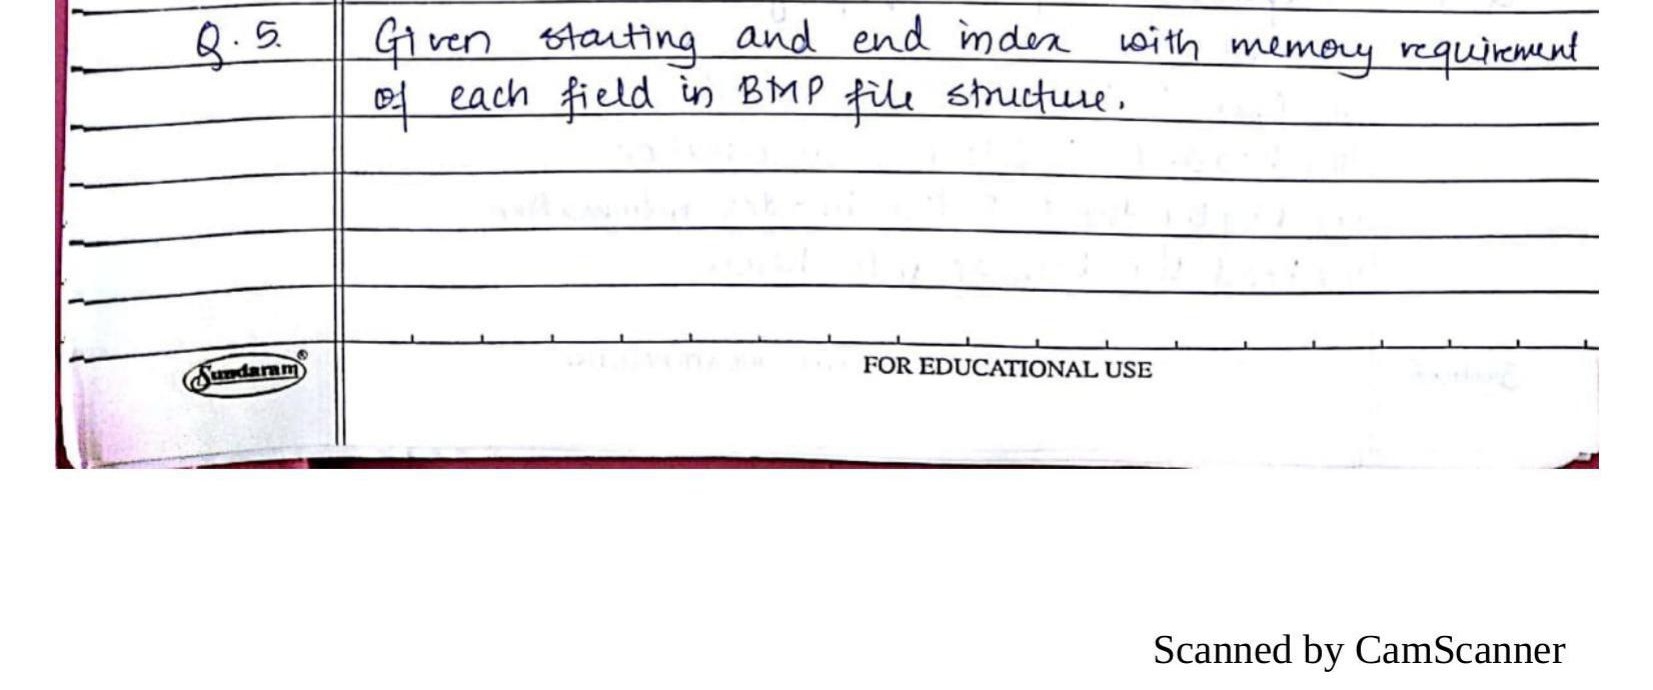 Q. 5. Given starting and end index with memory requirement
of each field in BMP file structure.
Sundaram®
FOR EDUCATIONAL USE
Scanned by CamScanner